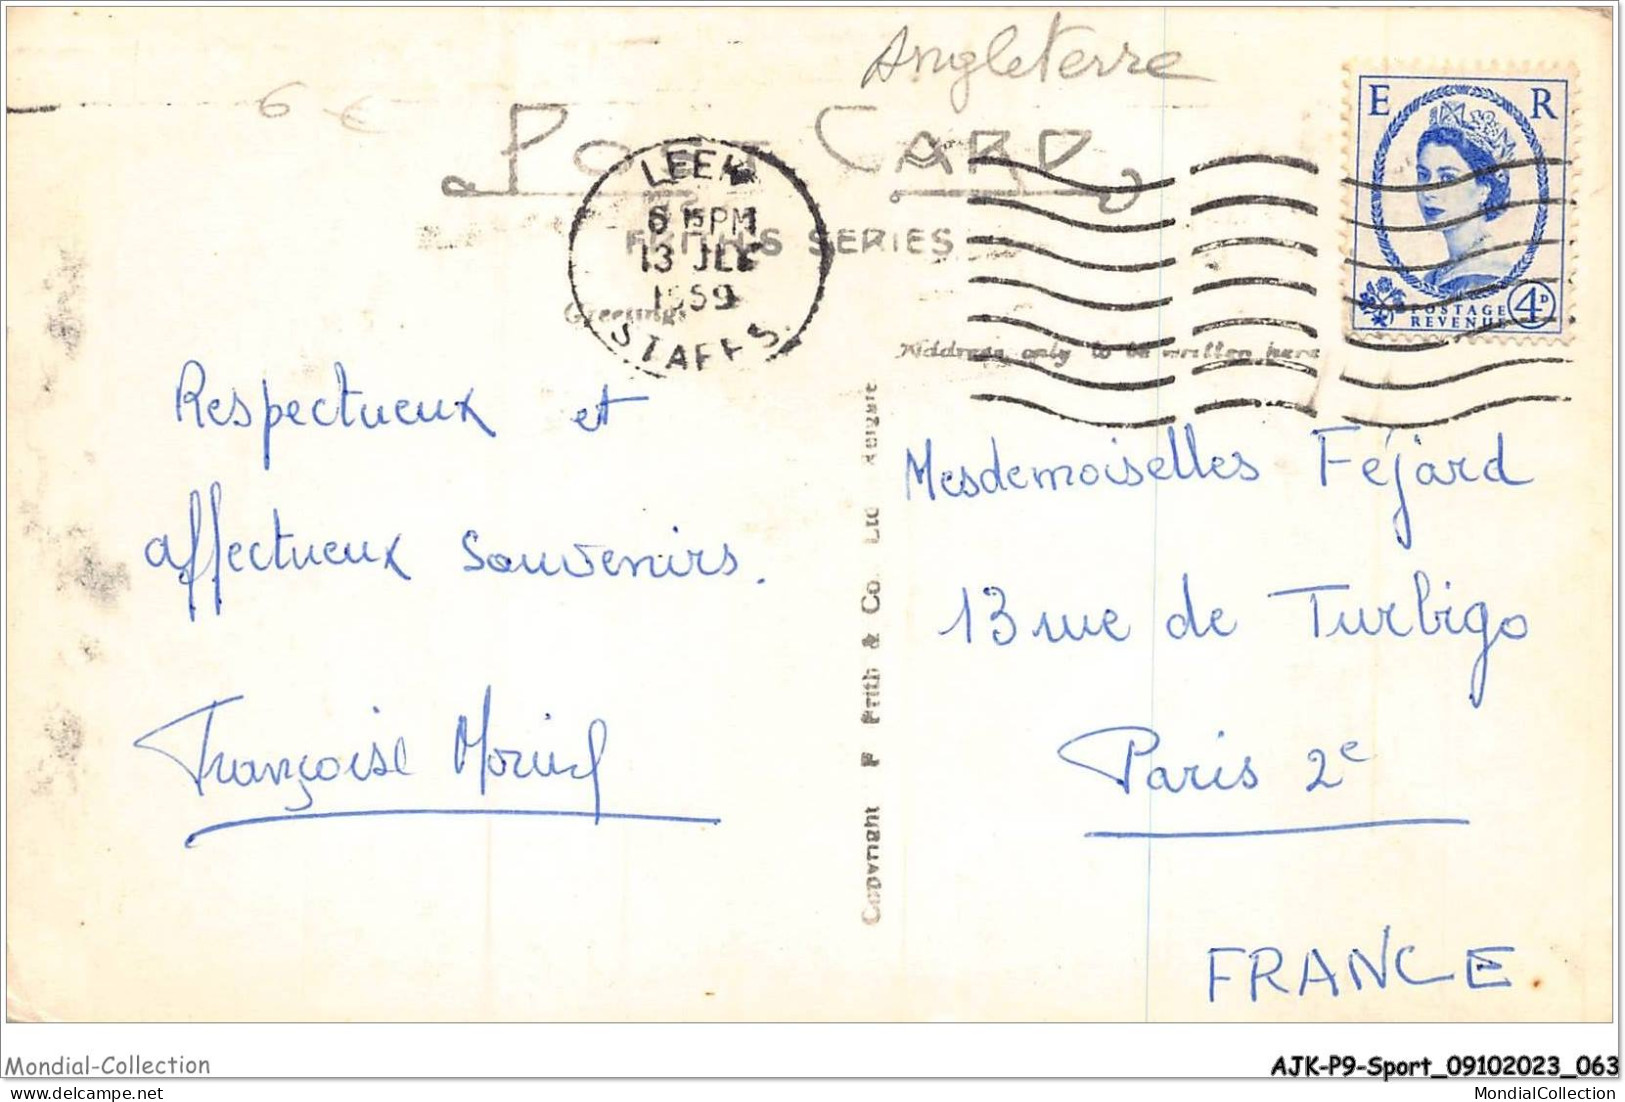 Angleterre
6 €
POST CARD
E R
LEEK
6 15 PM
13 JLY
1959
STAFFS.
FRITH'S SERIES
Greetings
POSTAGE
REVENUE
4D
Address only to be written here
Respectueux et
affectueux souvenirs.
Françoise
Copyright F Frith & Co. Ltd Reigate
Mesdemoiselles Féjard
13 rue de Turbigo
Paris 2e
FRANCE.
Mondial-Collection
AJK-P9-Sport_09102023_063
MondialCollection